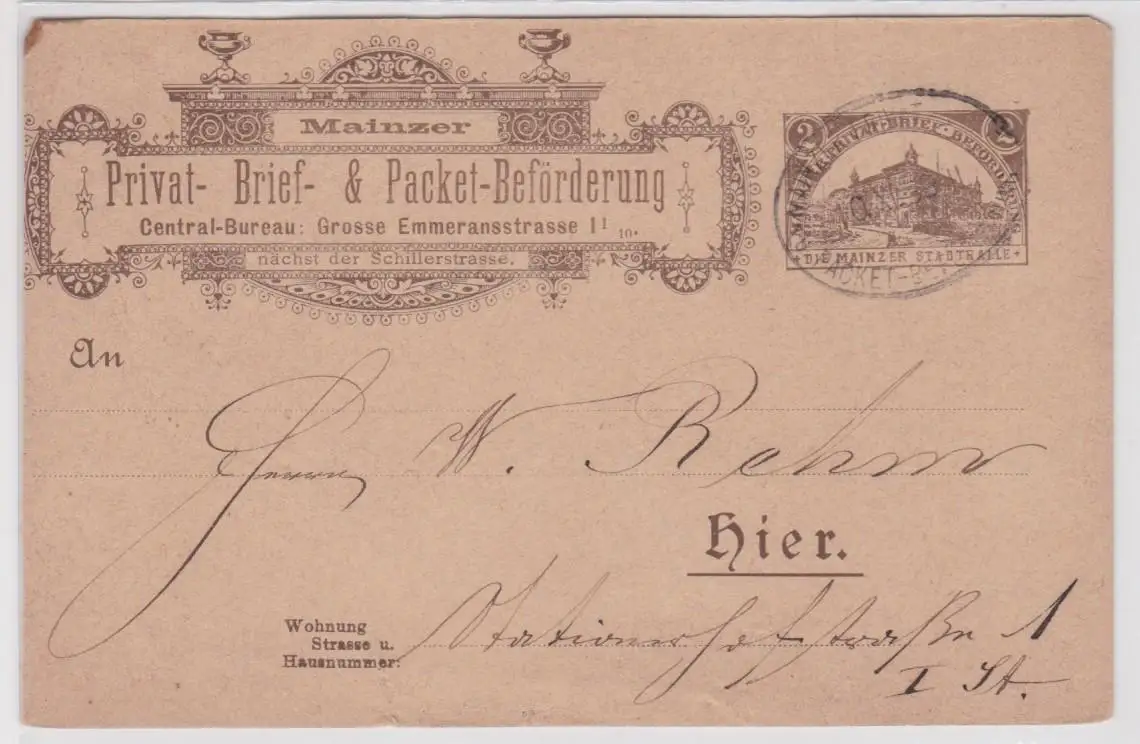 Mainzer
Privat- Brief- & Packet-Beförderung
Central-Bureau: Grosse Emmeransstrasse 1 1/10.
nächst der Schillerstrasse.
2 2
MAINZER PRIVAT-BRIEF-BEFÖRDERUNG
+ DIE MAINZER STADTHALLE +
PACKET-BE
An
Herrn W. Rehm
Hier.
Wohnung
Strasse u.
Hausnummer:
Stationerhofstraße 1
I St.